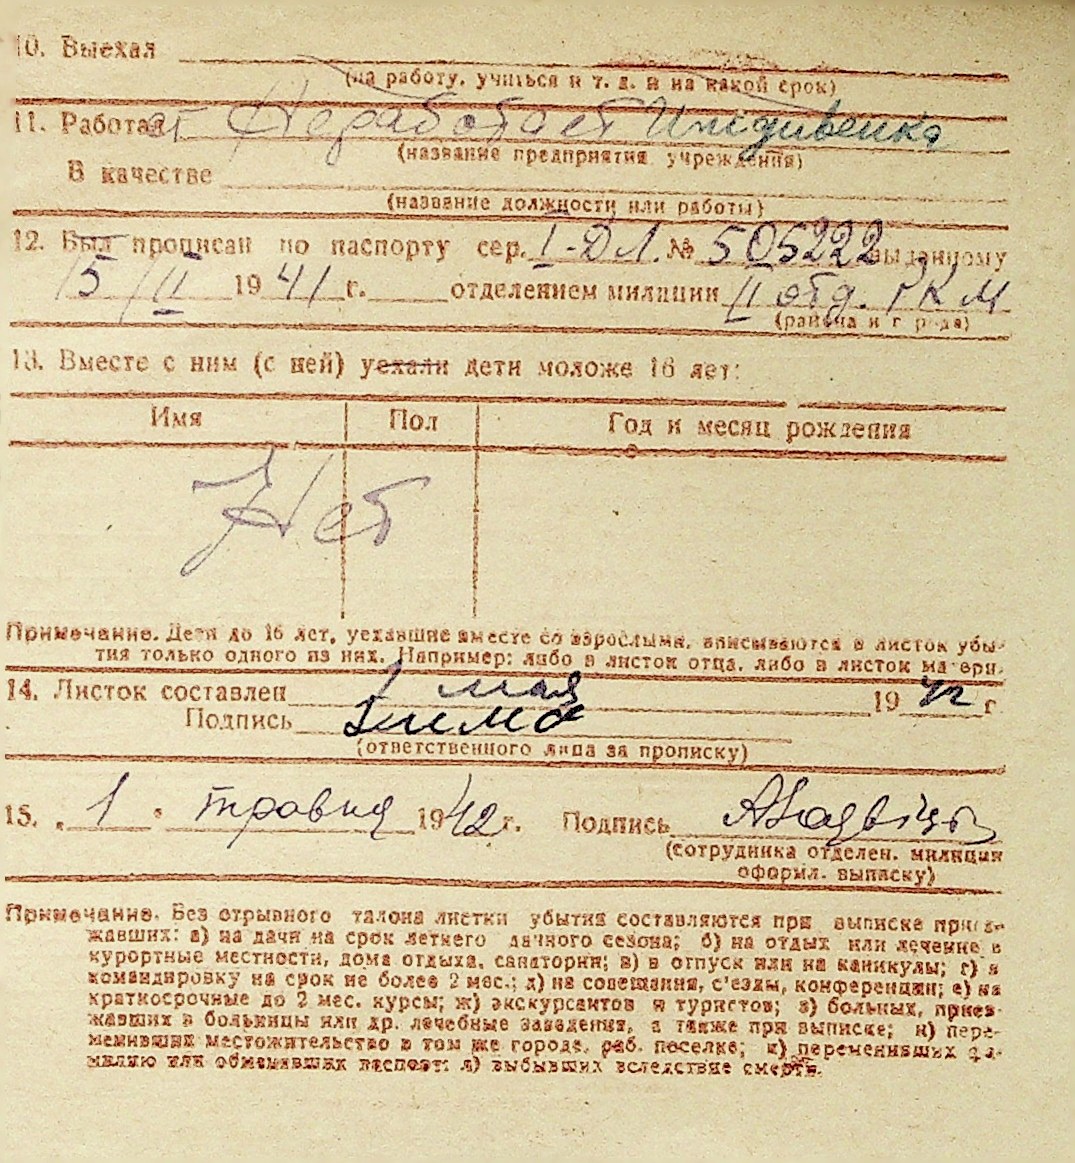 10. Выехал
(на работу, учиться и т. д. и на какой срок)
11. Работает Не работает Иждивенка
(название предприятия учреждения)
В качестве
(название должности или работы)
12. Был прописан по паспорту сер. I-ДЛ. № 505222 выданному
15/II 1941 г. отделением милиции II отд. РКМ
(района и города)
13. Вместе с ним (с ней) уехали дети моложе 16 лет:
Имя Пол Год и месяц рождения
Нет
Примечание. Дети до 16 лет, уехавшие вместе со взрослыми, вписываются в листок убы-
тия только одного из них. Например: либо в листок отца, либо в листок матери.
14. Листок составлен 1 мая 1942 г
Подпись
(ответственного лица за прописку)
15. „ 1 " травня 1942 г. Подпись
(сотрудника отделен. милиции
оформл. выписку)
Примечание. Без отрывного талона листки убытия составляются при выписке приез-
жавших: а) на дачи на срок летнего дачного сезона; б) на отдых или лечение в
курортные местности, дома отдыха, санатории; в) в отпуск или на каникулы; г) в
командировку на срок не более 2 мес.; д) на совещания, с'езды, конференции; е) на
краткосрочные до 2 мес. курсы; ж) экскурсантов и туристов; з) больных, приез-
жавших в больницы или др. лечебные заведения, а также при выписке; и) пере-
менивших местожительство в том же городе, раб. поселке; к) переменивших фа-
милию или обменивших паспорт; л) выбывших вследствие смерти.